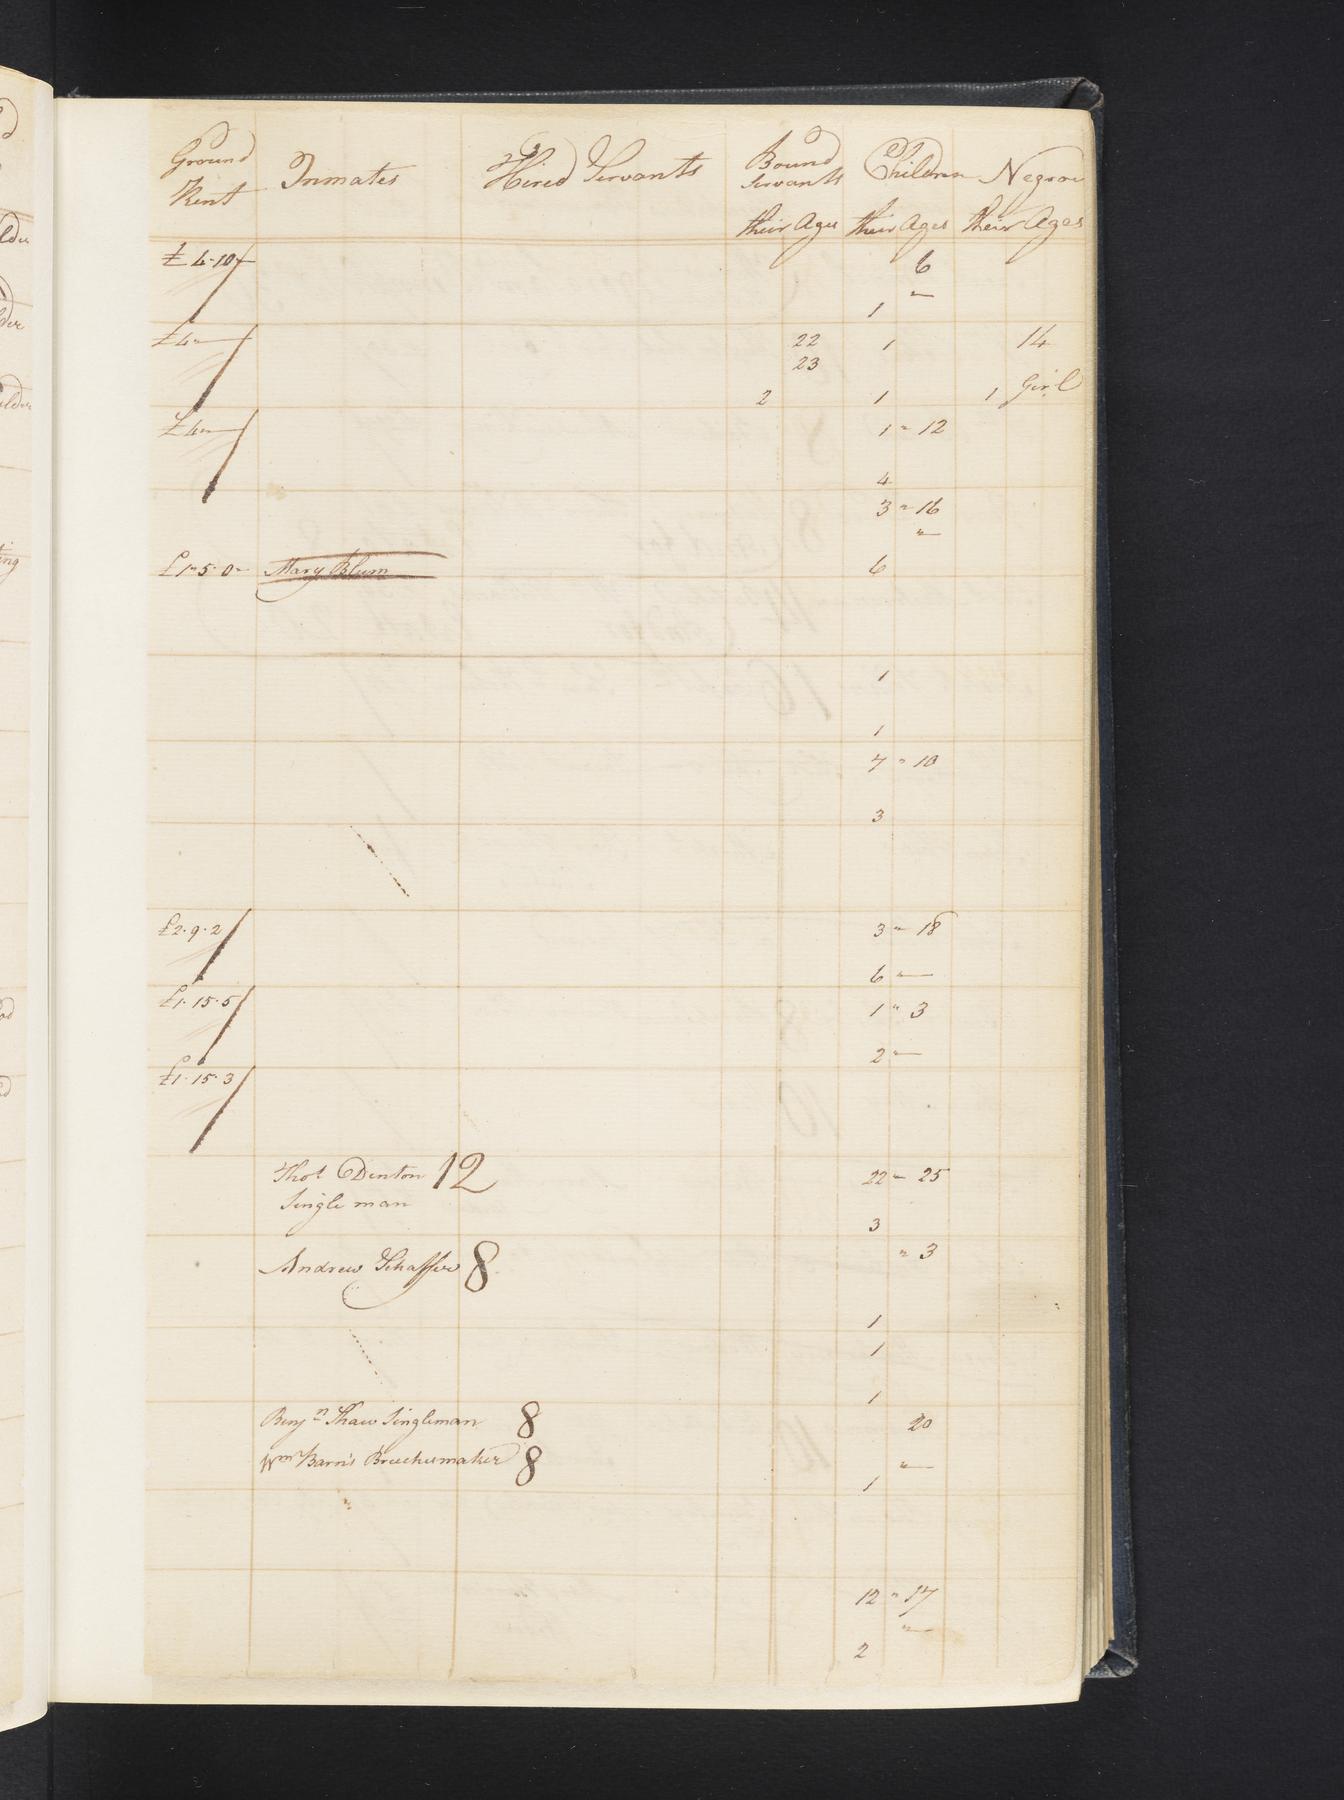 Ground Rent Inmates Hired Servants Bound Servants their Ages Children their Ages Negroes their Ages
£4-10 6
1 "
£4" 22 1 14
23
2 1 1 Girl
£4" 1 " 12
4
3 " 16
"
£1"5"0" Mary Blum 6
1
1
7 " 10
3
£2·9·2 3 " 18
6 "
£1·15·5 1 " 3
2 "
£1·15·3
Thos Denton 12 22 " 25
Single man
3
Andrew Schaffer 8 " 3
1
1
1
Benjn Shaw Singleman 8 20
Wm Barns Breechesmaker 8 "
1
12 " 17
"
2